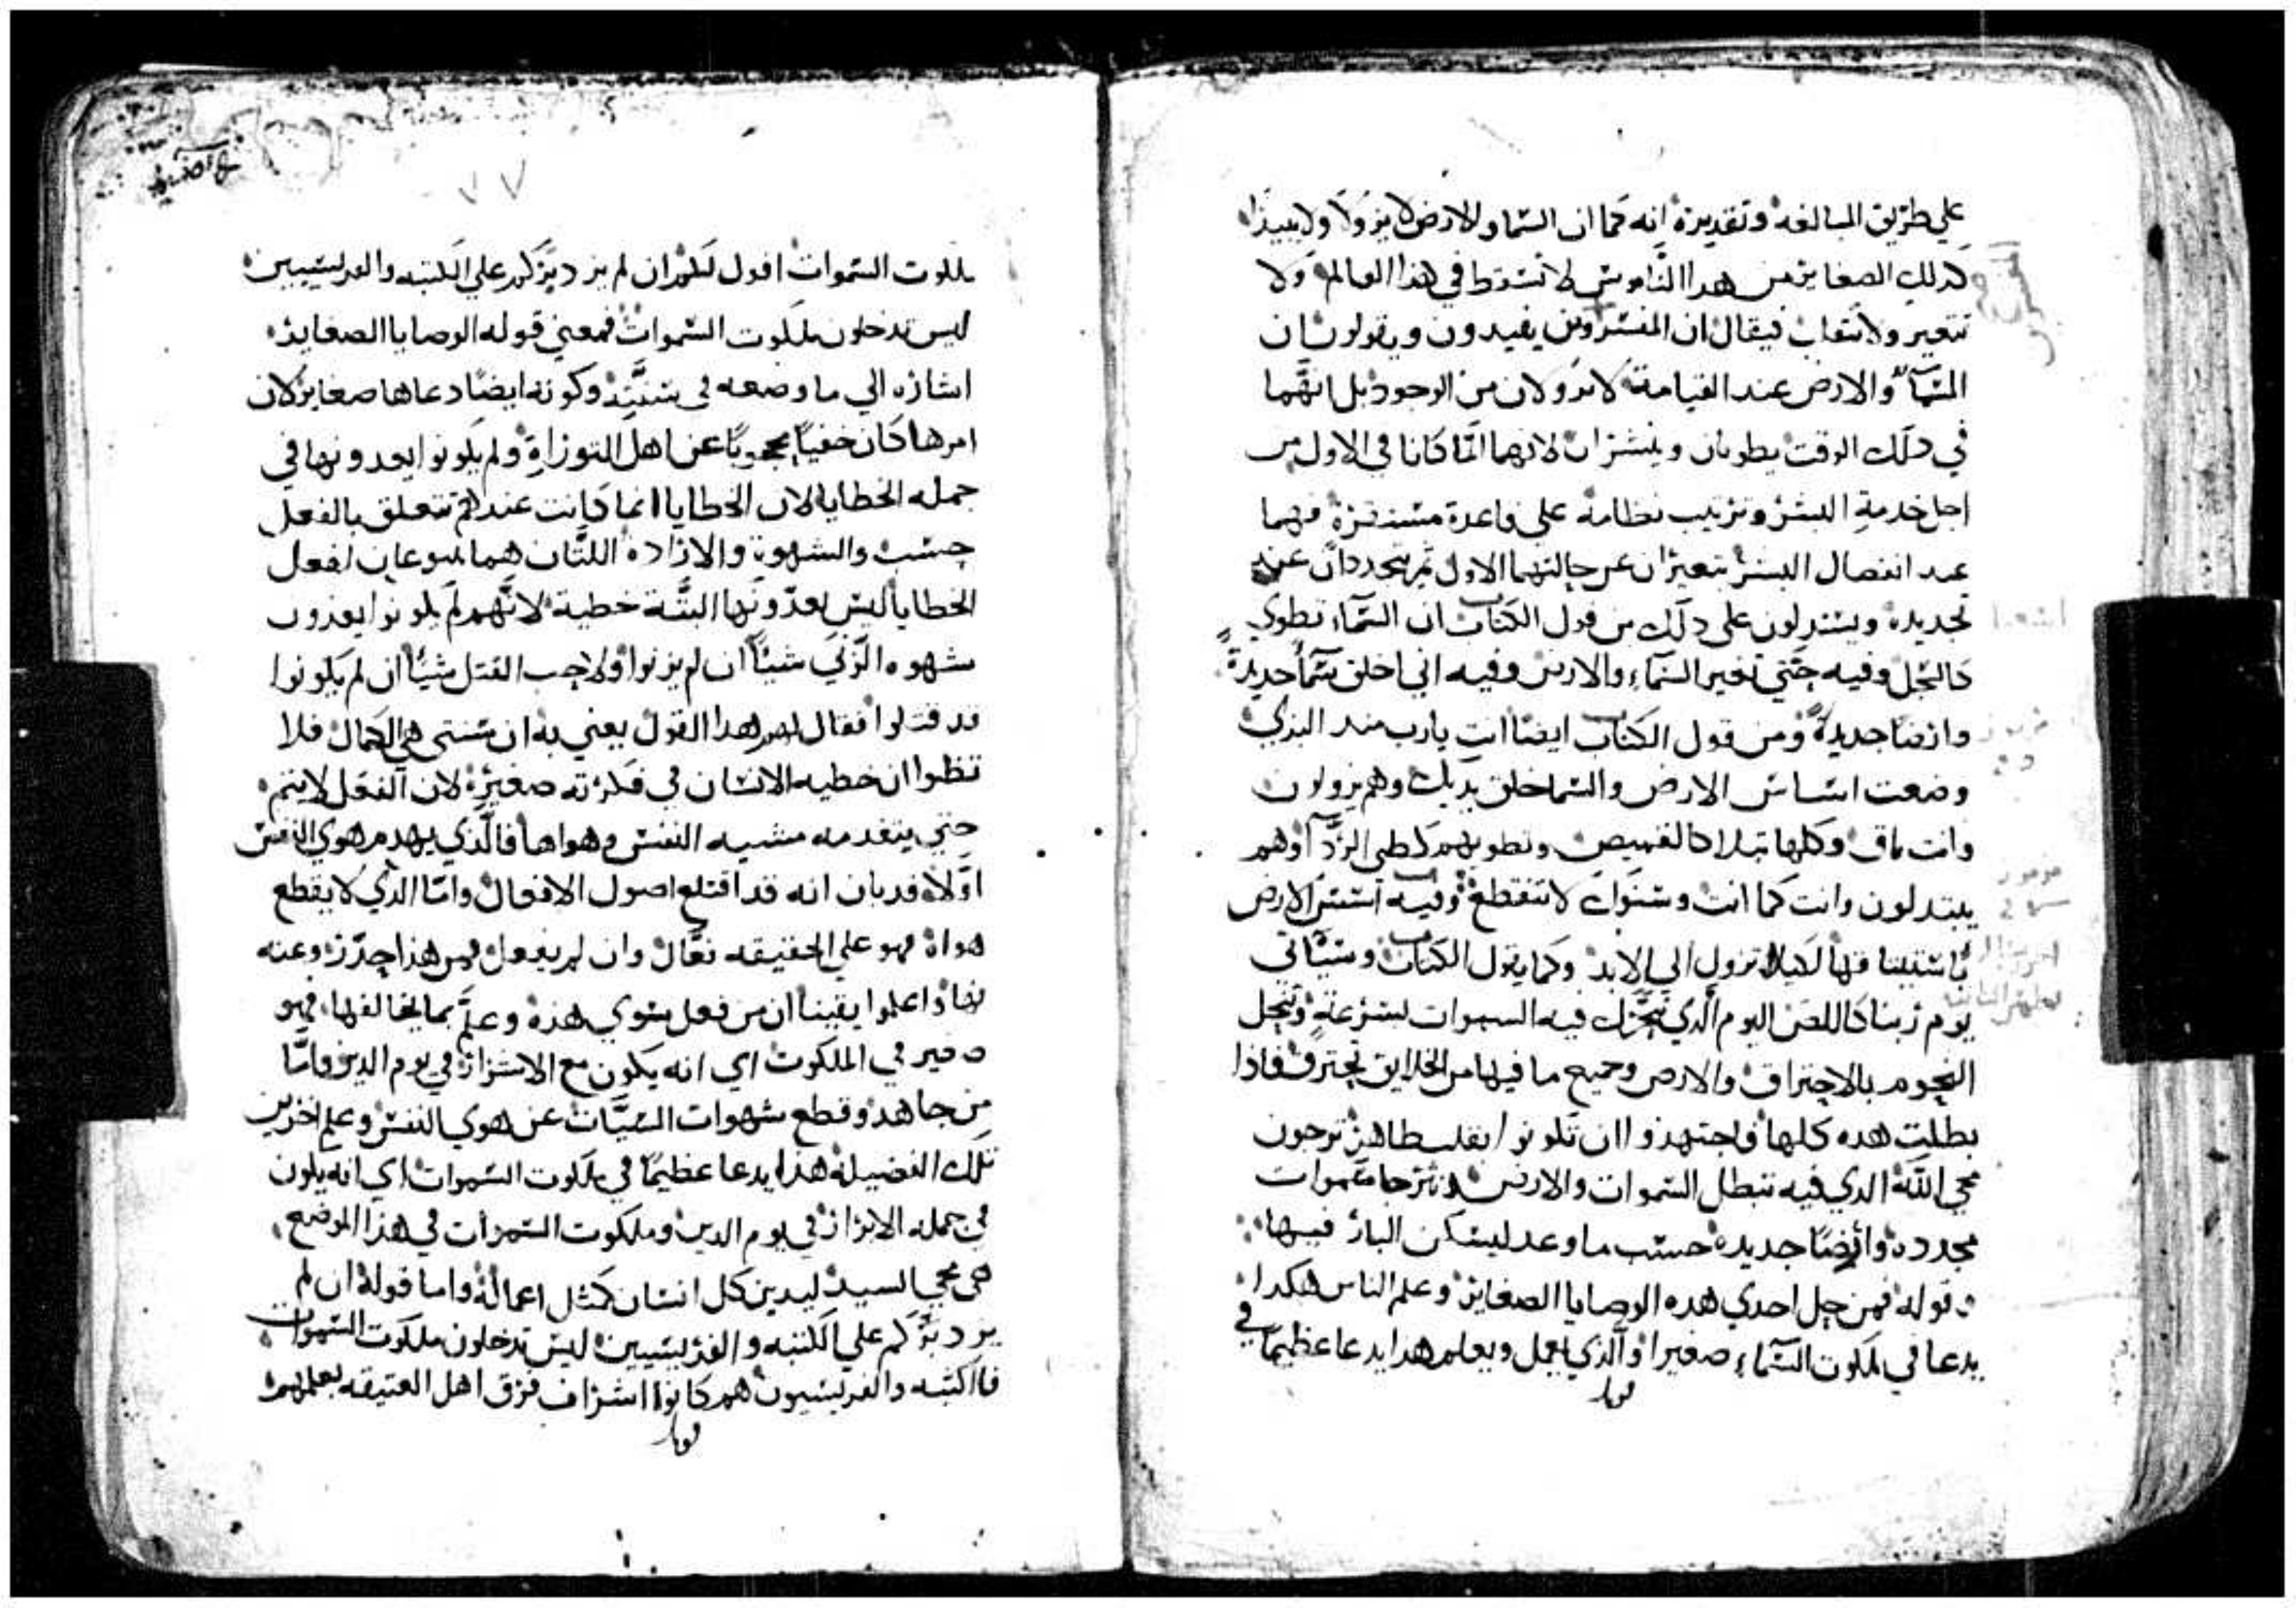 علي طريق المبالغه وتقديره انه كما ان السما والارض لا يزولا ولا يبيدا
كدلك الصغاير من هدا الناموس لا تسقط في هذا العالم ولا
تتغير ولا تنقلب فيقال ان المفسرون يفيدون ويقولون ان
السمآ والارض عند القيامة لا تزولان من الوجود بل انهما
في دلك الوقت يطويان وينشران لانهما انما كانا في الاول من
اجل خدمة البشر وترتيب نظامه علي قاعدة مستقرة فهما
عند انفصال البشر يتغيران عن حالتهما الاول ثم يتجددان عند
تجديده ويستدلون علي دلك من قول الكتاب ان السمآء تطوي
كالسجل وفيه حتي تغير السمآء والارض وفيه اني اخلق سمآ جديدة
وارضا جديدة ومن قول الكتاب ايضا انت يارب مند البدي
وضعت اساس الارض والسما خلق يديك وهم يزولون
وانت باق وكلها تبلا كالقميص وتطويهم كطي الردآ وهم
يبتدلون وانت كما انت وسنوك لا تنقطع وفيه اسس الارض
باستيتا قها لكيلا تزول الي الابد وكما يقول الكتاب وسيئاتي
يوم ربنا كاللص اليوم الدي تتحرك فيه السموات بسرعة وتنحل
النجوم بالاحتراق والارض وجميع ما فيها من الخلايق تحترق فاذا
بطلت هده كلها فاجتهدوا ان تكونوا بقلب طاهر ترجون
مجي الله الدي فيه تبطل السموات والارض لانترجا سموات
مجدده وارضا جديده حسب ما وعد ليسكن البار فيها
وقوله فمن حل احدي هده الوصايا الصغاير وعلم الناس هكدا
يدعا في ملكوت السمآء صغيرا والذي يعمل ويعلم هدا يدعا عظيما في
قوبل
٧٧
ملكوت السموات اقول لكم ان لم يزد بركم علي الكتبه والفريسيين
ليس تدخلون ملكوت السموات فمعني قوله الوصايا الصغاير
اشاره الي ما وضعه في سنته وكونه ايضا دعاها صغاير لان
امرها كان خفيا محجوبا عن اهل التوراة ولم يكونوا يعدونها في
جمله الخطايا لان الخطايا انما كانت عندهم تتعلق بالفعل
حسب والشهوة والاراده اللتان هما ينبوعان لفعل
الخطايا ليس يعدونها البتة خطية لانهم لم يكونوا يعدون
شهوه الزني شيئا ان لم يزنوا ولا حب القتل شيئا ان لم يكونوا
قد قتلوا فقال لهم هدا القول يعني به ان سنتي هي الكمال فلا
تظنوا ان خطيه الانسان في فكرته صغيرة لان الفعل لا يتم
حتي يتقدمه مشيه النفس وهواها فالذي يهدم هوي النفس
اولا فقد بان انه قد اقتلع اصول الافعال واما الذي لا يقطع
هواه فهو علي الحقيقه فعال وان لم يفعل فمن هذا حذر وعنه
نها واعلموا يقينا ان من فعل سوي هذه وعلم بما يخالفها، فهو
صغير في الملكوت اي انه يكون مع الاشرار في يوم الدين واما
من جاهد وقطع شهوات السيات عن هوي النفس وعلم اخرين
تلك الفضيلة هذا يدعا عظيما في ملكوت السموات اي انه يكون
في جمله الابرار في يوم الدين وملكوت السموات في هذا الموضع
هي مجي السيد ليدين كل انسان كمثل اعماله واما قوله ان لم
يزد بركم علي الكتبه والفريسيين ليس تدخلون ملكوت السموات
فالكتبه والفريسيون هم كانوا اشراف فرق اهل العتيقه بعلمهم
قوبل